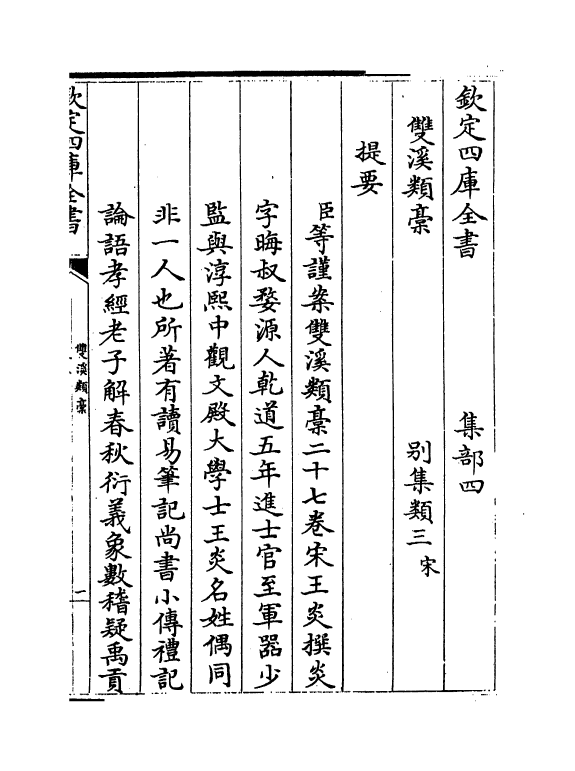 欽定四庫全書　集部四
雙溪類稾　别集類三宋
提要
臣等謹案雙溪類稾二十七卷宋王炎撰炎
字晦叔婺源人乾道五年進士官至軍器少
監與淳熙中觀文殿大學士王炎名姓偶同
非一人也所著有讀易筆記尚書小傳禮記
論語孝經老子解春秋衍義象數稽疑禹貢
欽定四庫全書
雙溪類稾